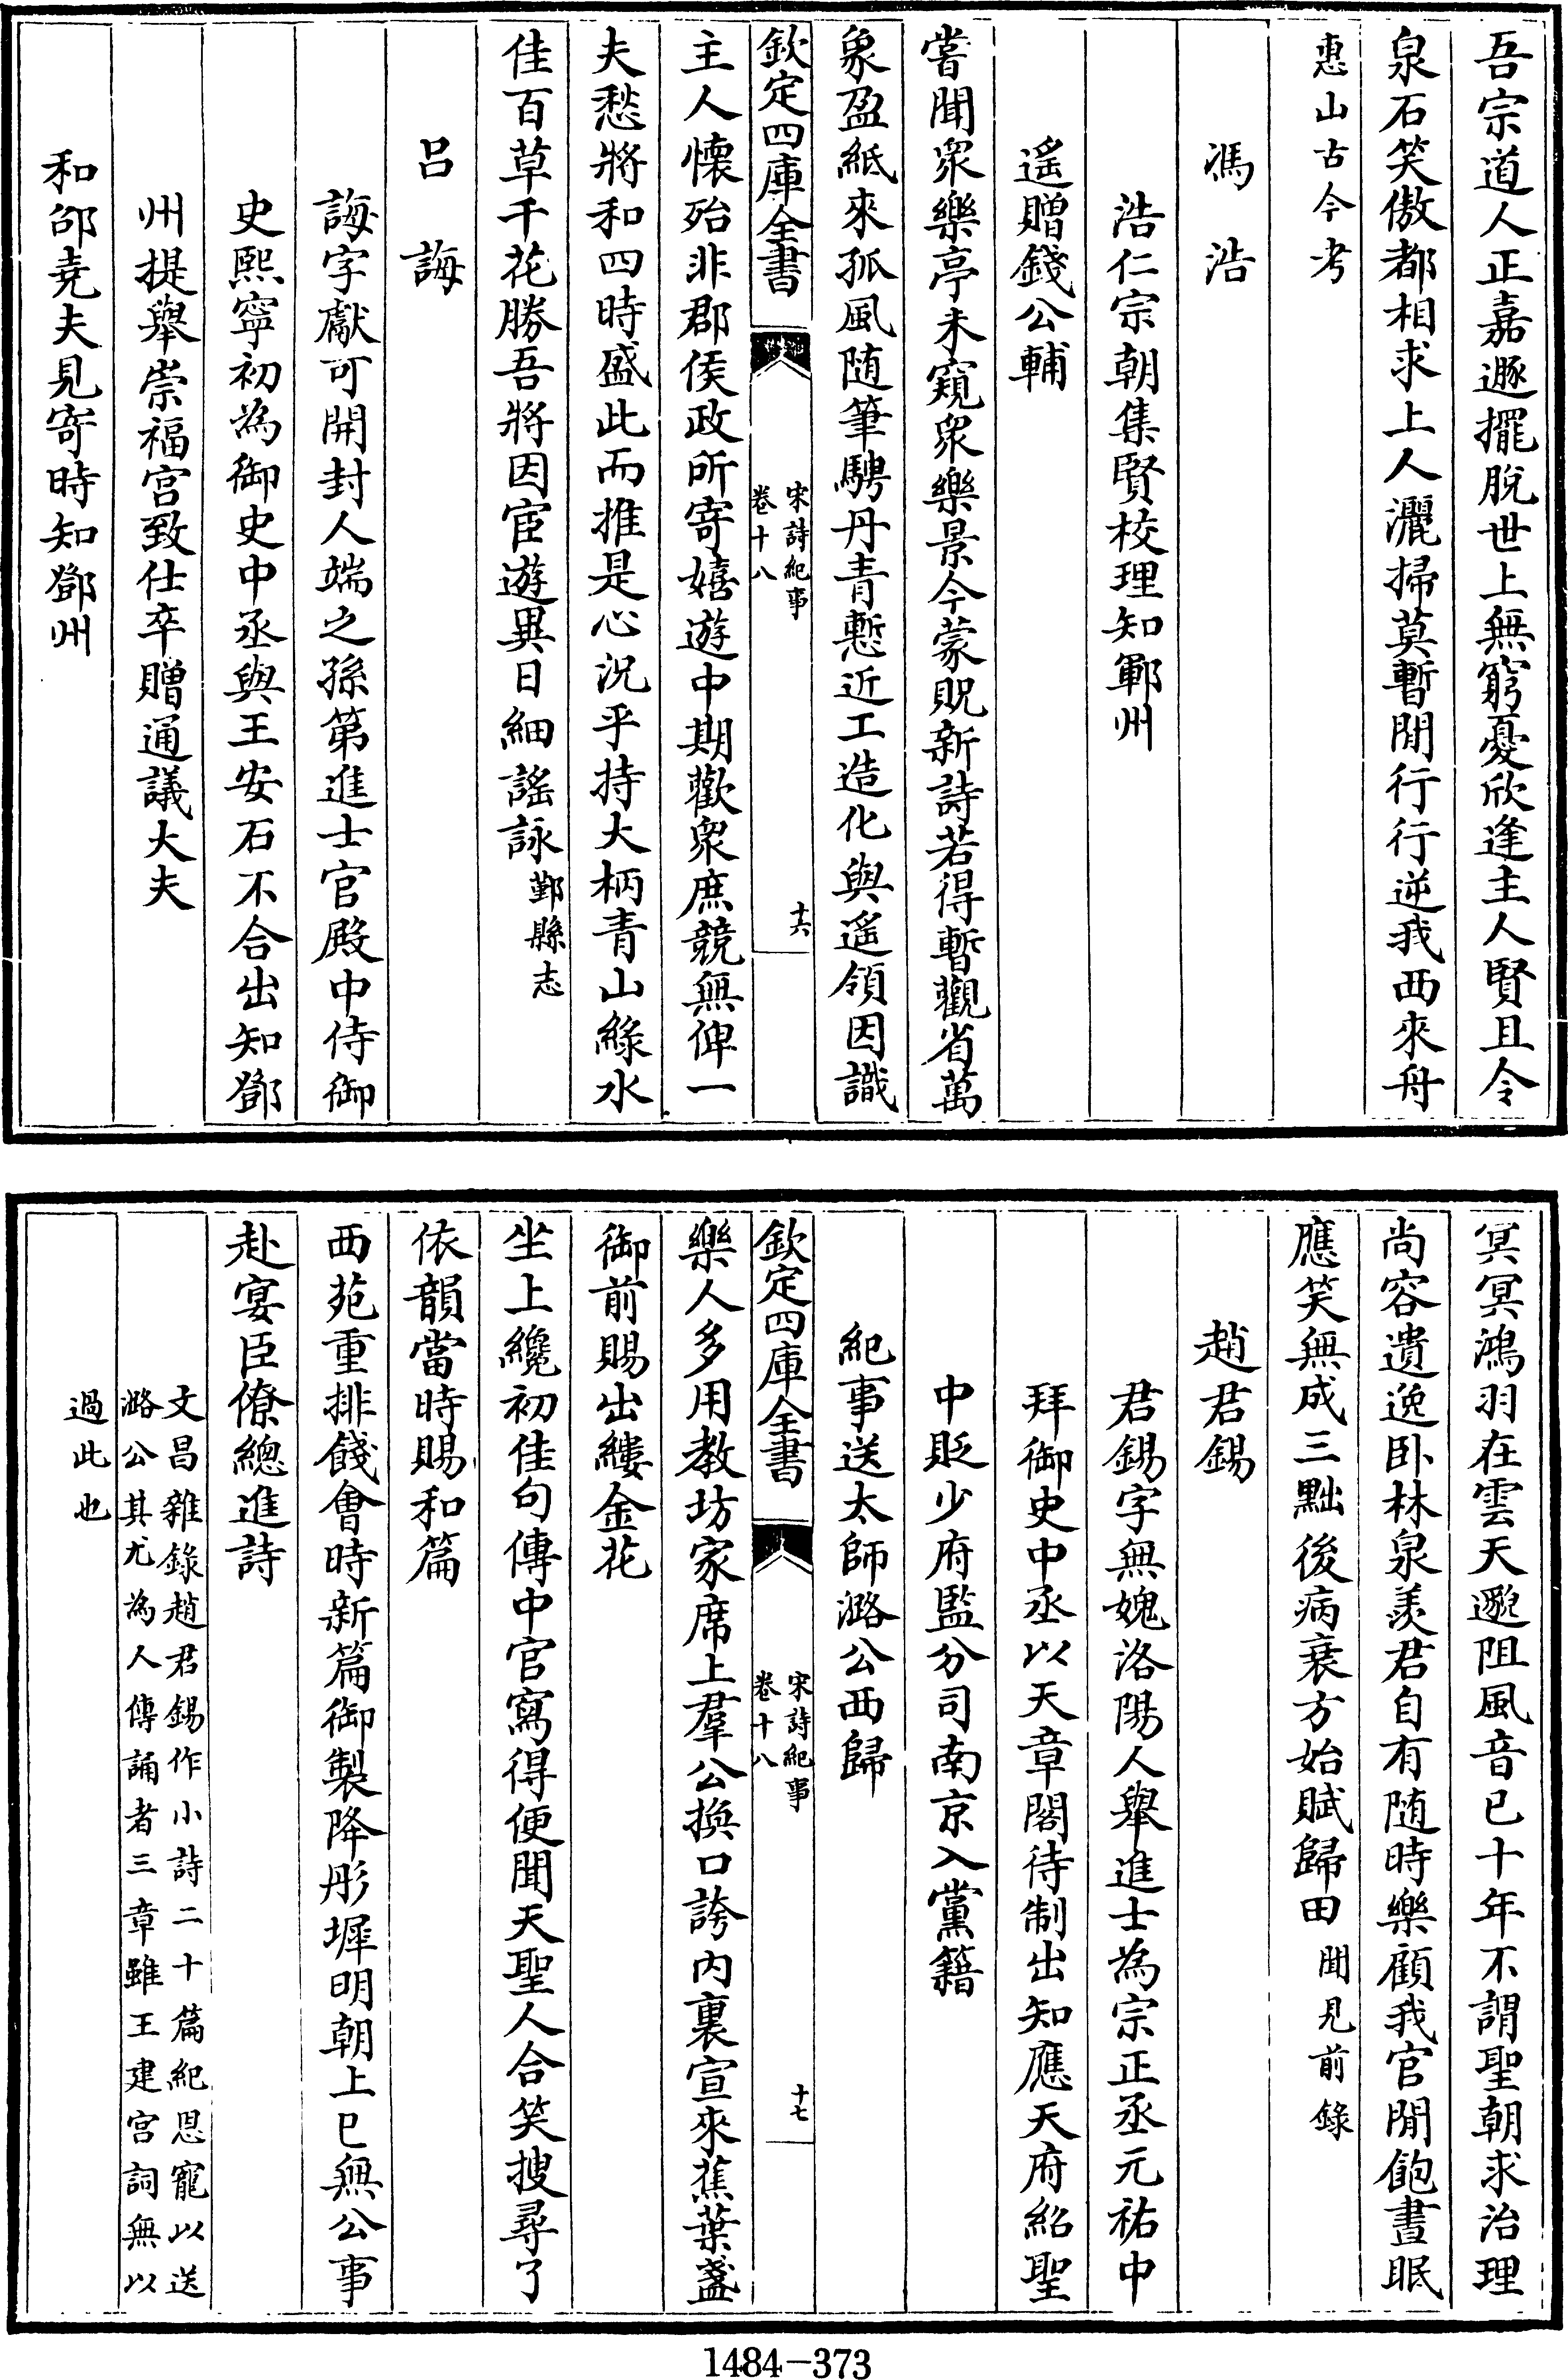 吾宗道人正嘉遯擺脫世上無窮憂欣逢主人賢且令
泉石笑傲都相求上人灑掃莫暫閒行行行逆我西來舟
惠山古今考
馮浩
浩仁宗朝集賢校理知鄆州
遙贈錢公輔
嘗聞衆樂亭未窺衆樂景今蒙貺新詩若得暫觀省萬
象盈紙來孤風随筆騁丹青慙近工造化與遥領因識
欽定四庫全書
宋詩紀事
卷十八
十六
主人懷殆非郡侯政所寄嬉遊中期歡衆庶競無俾一
夫愁將和四時盛此而推是心況乎持大柄青山綠水
佳百草千花勝吾將因宦遊異日細謠詠鄞縣志
呂誨
誨字獻可開封人端之孫第進士官殿中侍御
史熙寧初為御史中丞與王安石不合出知鄧
州提舉崇福宮致仕卒贈通議大夫
和邵堯夫見寄時知鄧州
冥冥鴻羽在雲天邈阻風音已十年不謂聖朝求治理
尚容遺逸卧林泉羨君自有随時樂顧我官閒飽晝眠
應笑無成三黜後病衰方始賦歸田聞見前錄
趙君錫
君錫字無媿洛陽人舉進士為宗正丞元祐中
拜御史中丞以天章閣待制出知應天府紹聖
中貶少府監分司南京入黨籍
紀事送太師潞公西歸
欽定四庫全書
宋詩紀事
卷十八
十七
樂人多用教坊家席上羣公換口誇內裏宣來蕉葉盞
御前賜出縷金花
坐上纔初佳句傳中官寫得便聞天聖人合笑搜尋了
依韻當時賜和篇
西苑重排餞會時新篇御製降彤墀明朝上巳無公事
赴宴臣僚總進詩
文昌雜錄趙君錫作小詩二十篇紀恩寵以送
潞公其尤為人傳誦者三章雖王建宮詞無以
過此也
1484-373